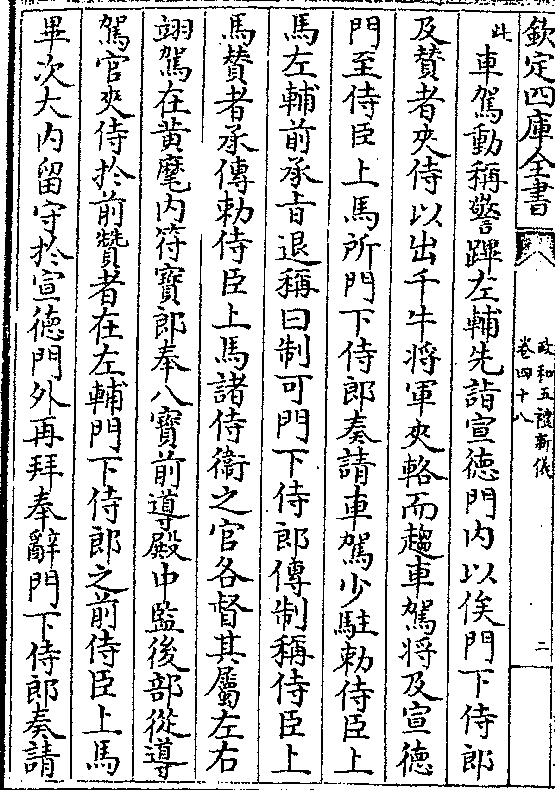 欽定四庫全書
政和五禮新儀
卷四十八
二
此
車駕動稱警蹕左輔先詣宣德門内以俟門下侍郎
及賛者夾侍以出千牛將軍夾輅而趨車駕將及宣德
門至侍臣上馬所門下侍郎奏請車駕少駐勅侍臣上
馬左輔前承㫖退稱曰制可門下侍郎傳制稱侍臣上
馬賛者承傳勅侍臣上馬諸侍衞之官各督其屬左右
翊駕在黄麾内符寳郎奉八寳前導殿中監後部從導
駕官夾侍於前贊者在左輔門下侍郎之前侍臣上馬
畢次大内留守於宣德門外再拜奉辭門下侍郎奏請